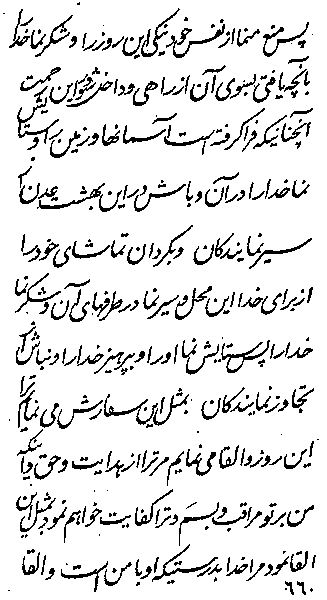 پس منع منما از نفس خود نیکی این روز را و شکر نما خدا را
بآنچه یافتی بسوی آن از راهی و داخل شو در این رحمت
آنچنانیکه فرا گرفته است آسمانها و زمین را و ستایش
نما خدا را در آن و باش در این بهشت عدن از
سیر نمایندکان وبکردان تماشای خود را
از برای خدا این محل و سیر نما در طرفهای آن و شکر نما
خدا را پس ستایش نما او را و بپرهیز خدا را و نباش از
تجاوز نمایندکان بمثل این سفارش می نمایم ترا
این روز و القا می نمایم مر ترا از هدایت و حق و آنکه
من بر تو مراقب و بسم و ترا کفایت خواهم نمود بمثل این
القا نمود مرا خدا بدرستیکه او با من است و القا
۶۶۰